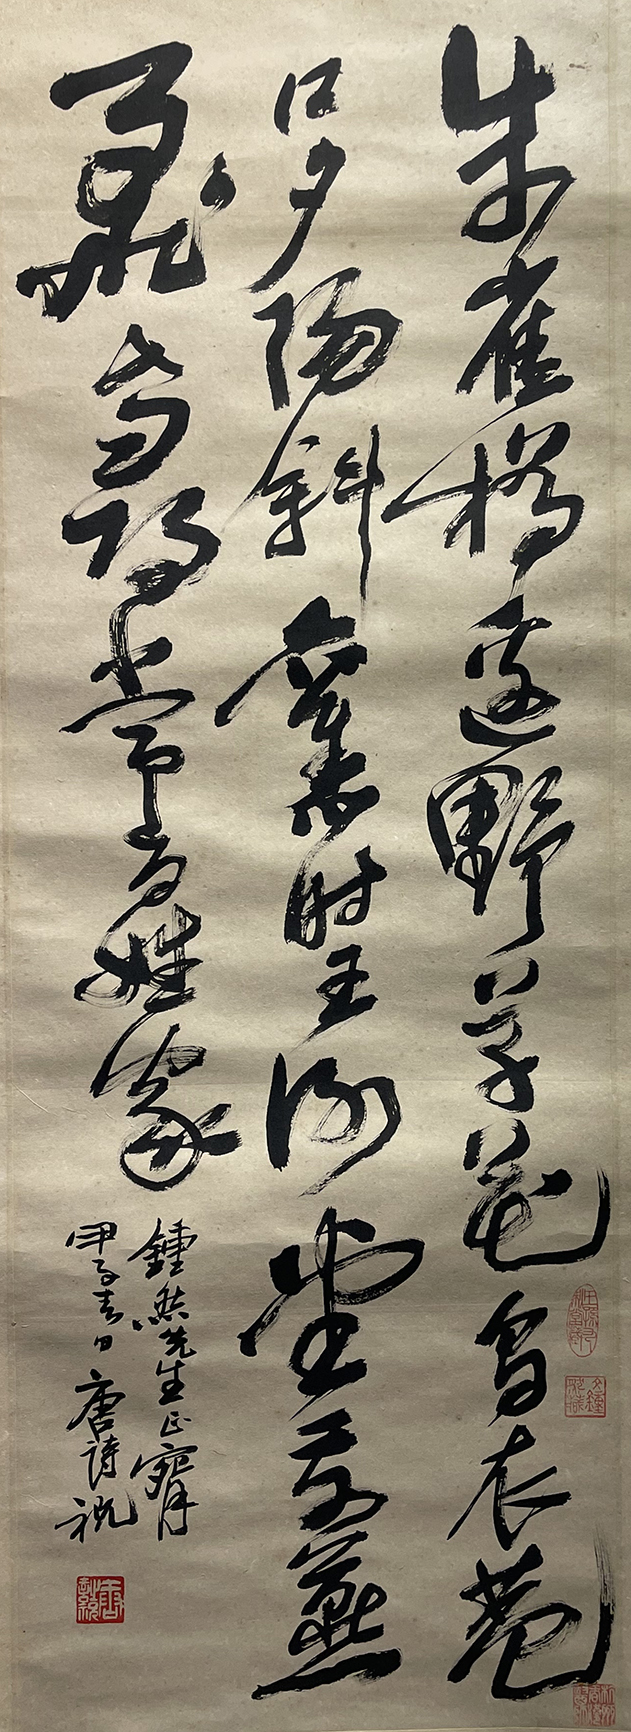 朱雀橋邊野草花烏衣巷
口夕陽斜舊時王謝堂前燕
飛入尋常百姓家
先生正腕
甲子春日 唐詩祝